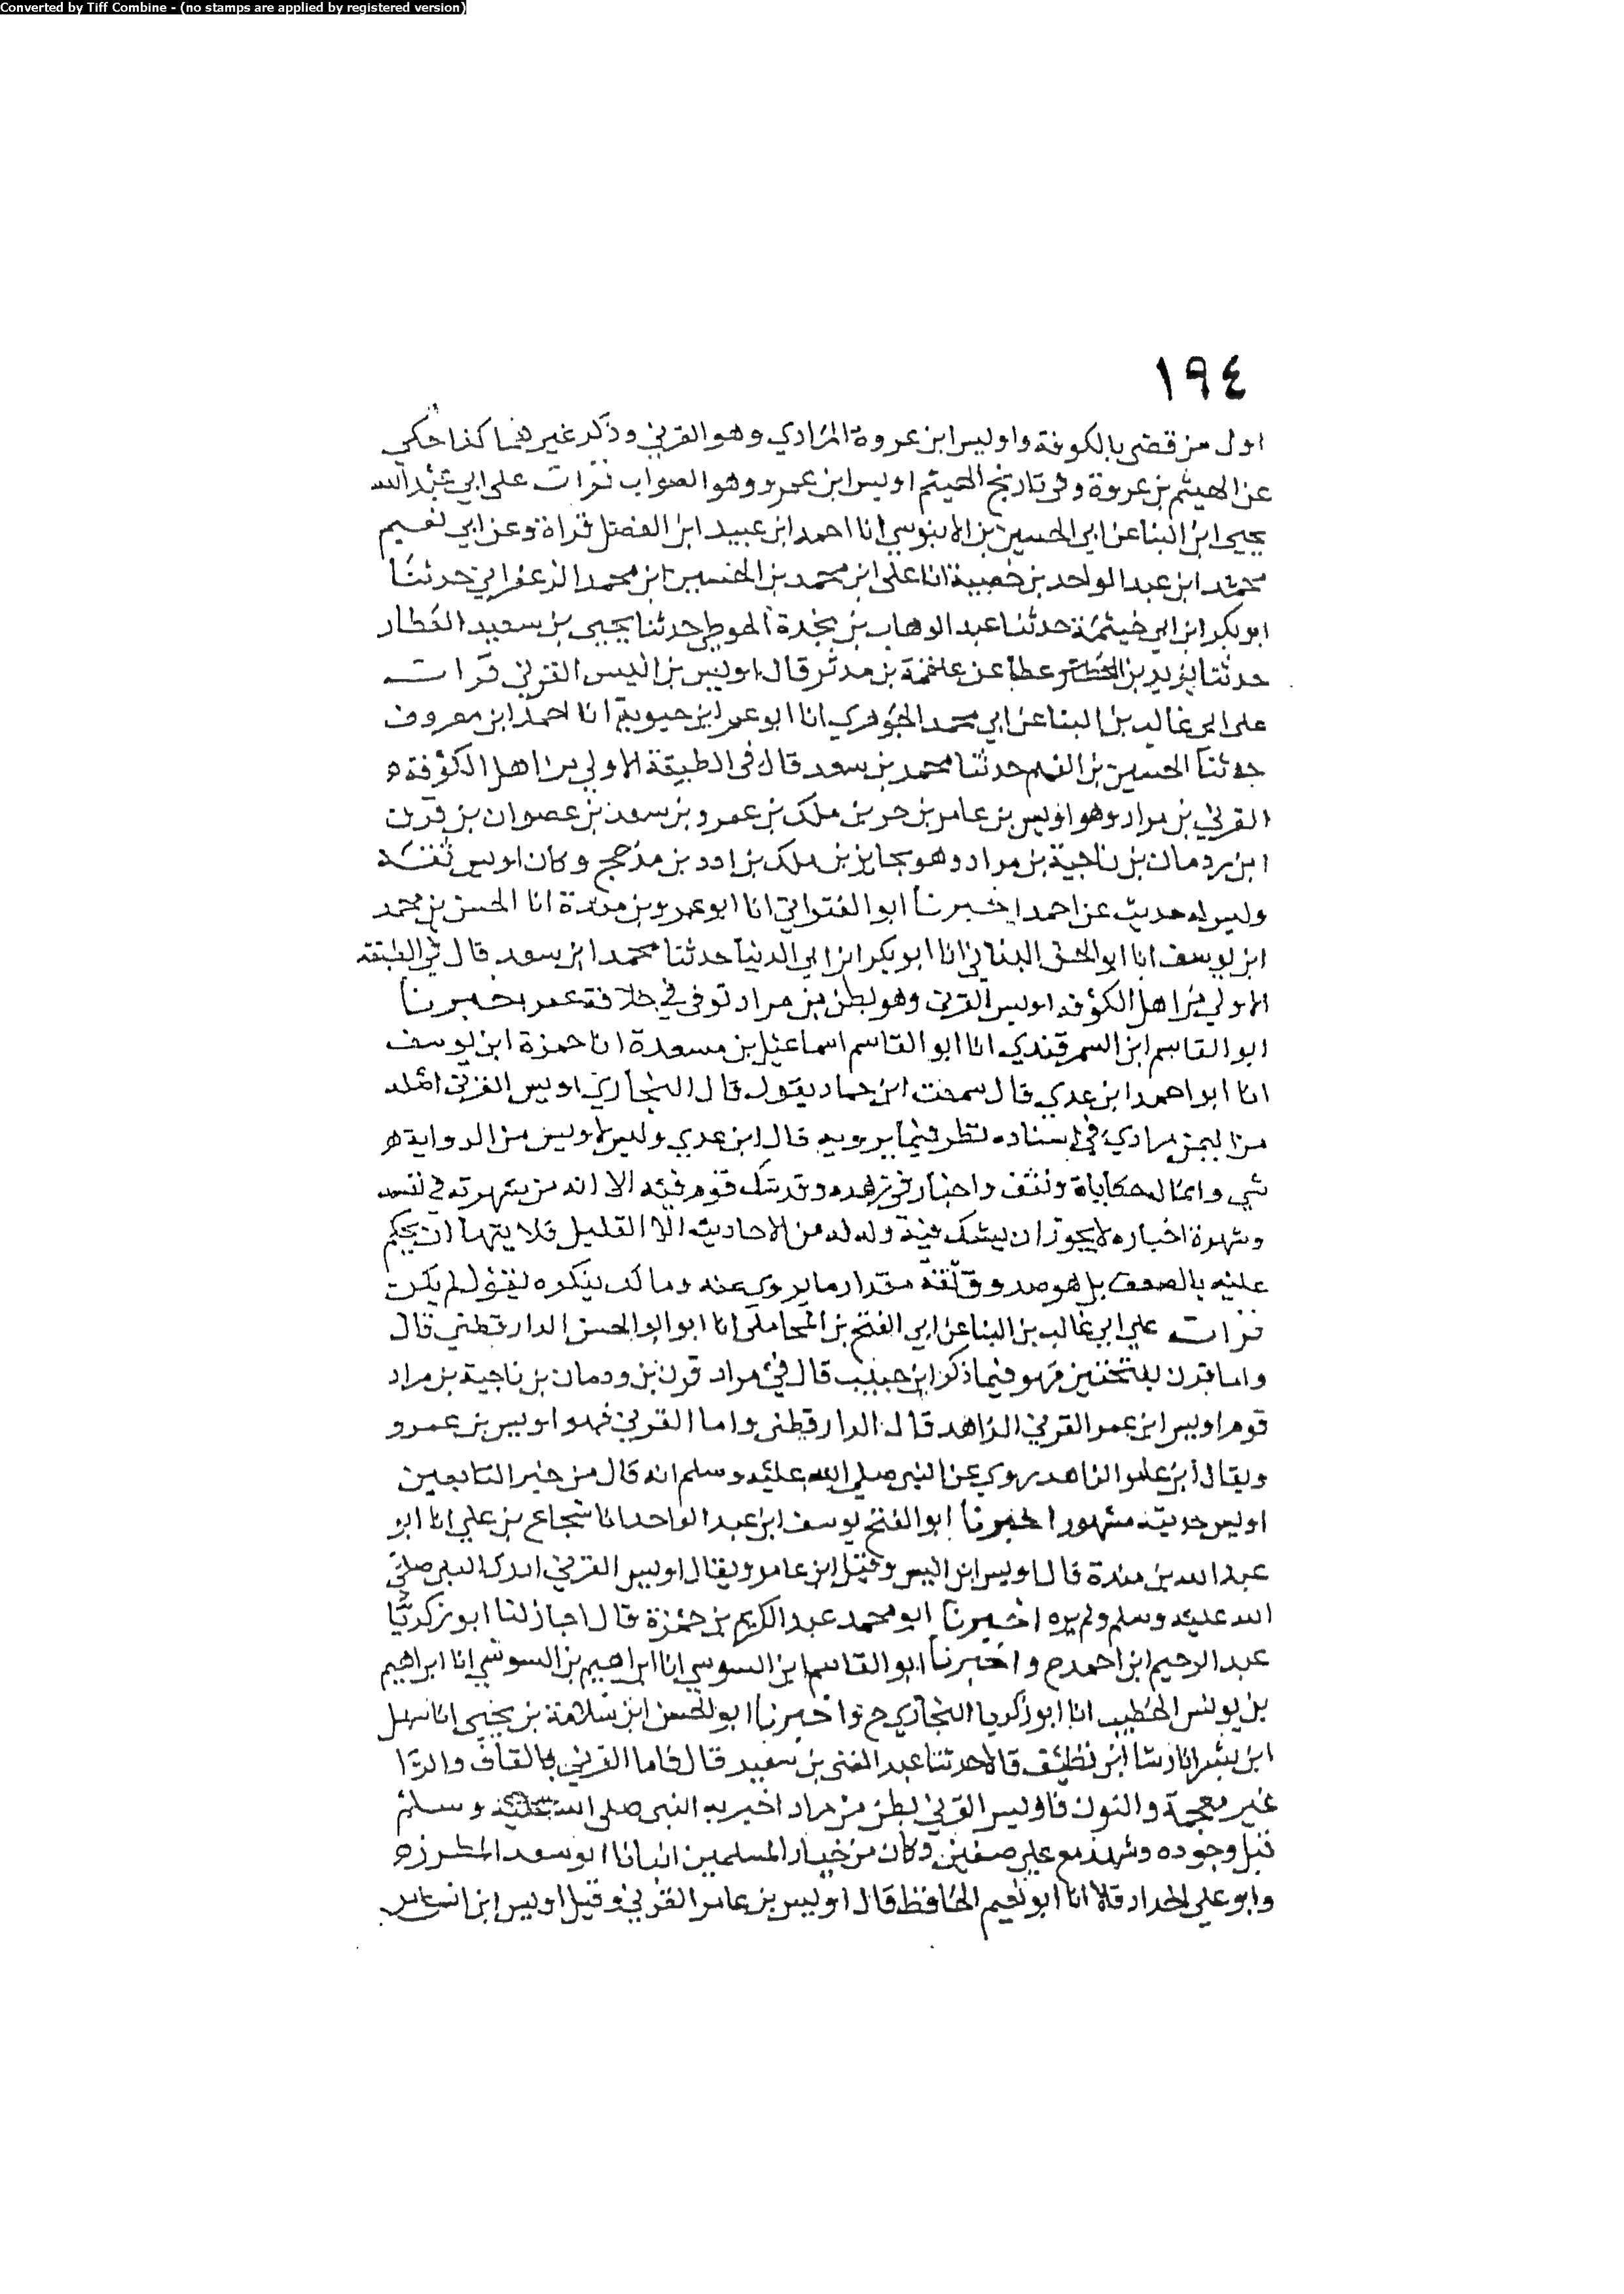 Converted by Tiff Combine - (no stamps are applied by registered version)
١٩٤
اول من قضى بالكوفة واويس ابن عروة المرادي وهو القرني وذكر غيرهما كذا حكي
عن الهيثم بن عروة وفي تاريخ الهيثم اويس ابن عمرو وهو الصواب قرات على ابي عبد الله
يحيى ابن البنا عن ابي الحسين بن الابنوسي انا احمد ابن عبيد ابن الفضل قراة وعن ابي نعيم
محمد ابن عبد الواحد بن خصية انا علي ابن محمد بن الحسين ابن محمد الزعفراني حدثنا
ابو بكر ابن ابي خيثمة حدثنا عبد الوهاب بن نجدة الحوطي حدثنا يحيى بن سعيد العطار
حدثنا يزيد بن عطا عن علقمة بن مرثد قال اويس بن انيس القرني قرات
على ابي غالب بن البنا عن ابي محمد الجوهري انا ابو عمر ابن حيوية انا احمد ابن معروف
حدثنا الحسين بن الفهم حدثنا محمد بن سعد قال في الطبقة الاولي من اهل الكوفة ه
القرني بن مراد وهو اويس بن عامر بن حر بن ملك بن عمرو بن سعد بن عصوان بن قرن
ابن ردمان بن ناجية بن مراد وهو يحابر بن ملك بن ادد بن مذحج وكان اويس ثقة
وليس له حديث عن احد اخبرنا ابو الفتراتي انا ابو عمرو بن مندة انا الحسن بن محمد
ابن يوسف انا ابو الحسن البناني انا ابو بكر ابن ابي الدنيا حدثنا محمد ابن سعد قال في الطبقة
الاولي من اهل الكوفة اويس القرني وهو بطن من مراد توفي في خلافة عمر اخبرنا
ابو القاسم ابن السمرقندي انا ابو القاسم اسماعيل بن مسعدة انا حمزة ابن يوسف
انا ابو احمد ابن عدي قال سمعت ابن حماد يقول قال البخاري اويس القرني اصله
من اليمن مرادي في اسناده نظر فيما يرويه قال ابن عدي وليس لاويس من الرواية ه
شي وانما له حكاياة ونتف واخبار في زهده وقد شك قوم فيه الا انه من شهرته في نفسه
وشهرة اخباره لا يجوز ان يشك فيه وله من الاحاديث الا القليل فلا يتهيا ان يحكم
عليه بالضعف بل هو صدوق ثقة مقدار ما يروى عنه ومالك ينكره يقول لم يكن
قرات علي ابي غالب بن البنا عن ابي الفتح بن المحاملي انا ابو الحسن الدارقطني قال
واما قرن بفتحتين فهو فيما ذكر ابن حبيب قال في مراد قرن بن ردمان بن ناجية بن مراد
قوم اويس ابن عمر القرني الزاهد قال الدارقطني واما القرني فهو اويس بن عمرو
ويقال ابن عامر الزاهد روي عن النبي صلي الله عليه وسلم انه قال من خير التابعين
اويس حديثه مشهور اخبرنا ابو الفتح يوسف ابن عبد الواحد انا شجاع بن علي انا ابو
عبد الله بن مندة قال اويس ابن انيس وقيل ابن عامر ويقال اويس القرني ادرك النبي صلى
الله عليه وسلم ولم يره اخبرنا ابو محمد عبد الكريم بن حمزة قال اجاز لنا ابو زكريا
عبد الرحيم ابن احمد ح واخبرنا ابو القاسم ابن السوسي انا ابراهيم بن السوسي انا ابراهيم
بن يونس الخطيب انا ابو زكريا البخاري ح واخبرنا ابو الحسن ابن سلامة بن يحيى انا سهل
ابن بشر انا رشا ابن نظيف قالا حدثنا عبد الغني بن سعيد قال فاما القرني بالقاف والرا
غير معجمة والنون فاويس القرني بطن من مراد اخبر به النبي صلى الله عليه وسلم
قبل وجوده وشهد مع علي صفين وكان من خيار المسلمين انبانا ابو سعد المطرز ه
وابو علي الحداد قالا انا ابو نعيم الحافظ قال اويس بن عامر القرني وقيل اويس ابن انيس